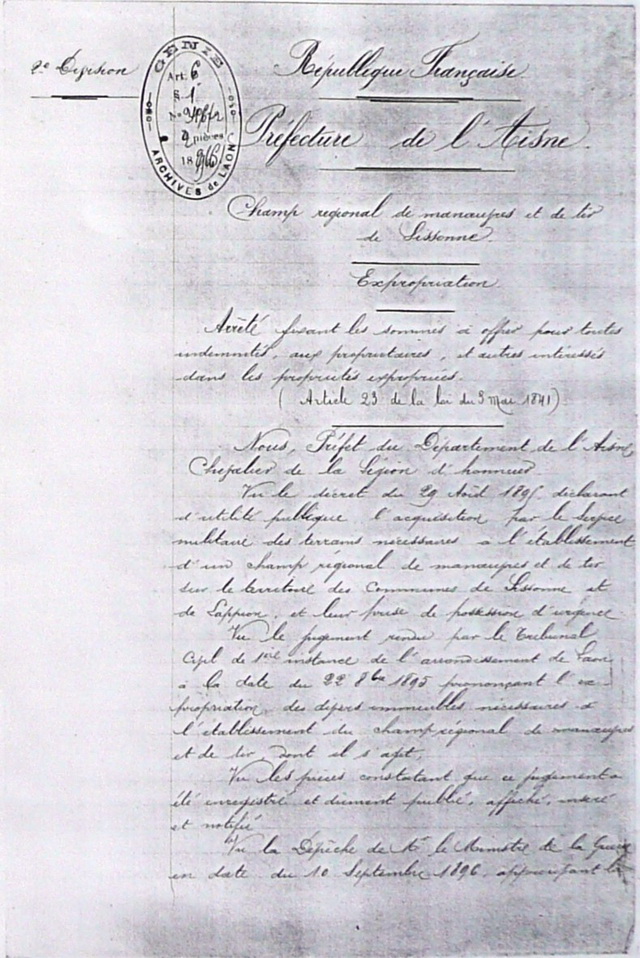 2e Division
GENIE
Art. 6
§ 1
No
2 pièces
18
ARCHIVES de LAON
République Française
Préfecture de l'Aisne.
Champ régional de manœuvres et de tir
de Sissonne.
Expropriation
Arrêté fixant les sommes à offrir pour toutes
indemnités, aux propriétaires, et autres intéressés
dans les propriétés expropriées.
(Article 23 de la loi du 3 Mai 1841)
Nous, Préfet du Département de l'Aisne,
Chevalier de la Légion d'honneur
Vu le décret du 29 Août 1895, déclarant
d'utilité publique l'acquisition par le Service
militaire des terrains nécessaires à l'établissement
d'un champ régional de manœuvres et de tir
sur le territoire des Communes de Sissonne et
de Lappion, et leur prise de possession d'urgence.
Vu le jugement rendu par le Tribunal
Civil de 1ère instance de l'arrondissement de Laon
à la date du 22 8bre 1895 prononçant l'ex-
propriation des divers immeubles nécessaires à
l'établissement du champ régional de manœuvres
et de tir dont il s'agit,
Vu les pièces constatant que ce jugement a
été enregistré et dûment publié, affiché, inséré
et notifié
Vu la Dépêche de Mr le Ministre de la Guerre
en date du 10 Septembre 1896, approuvant la